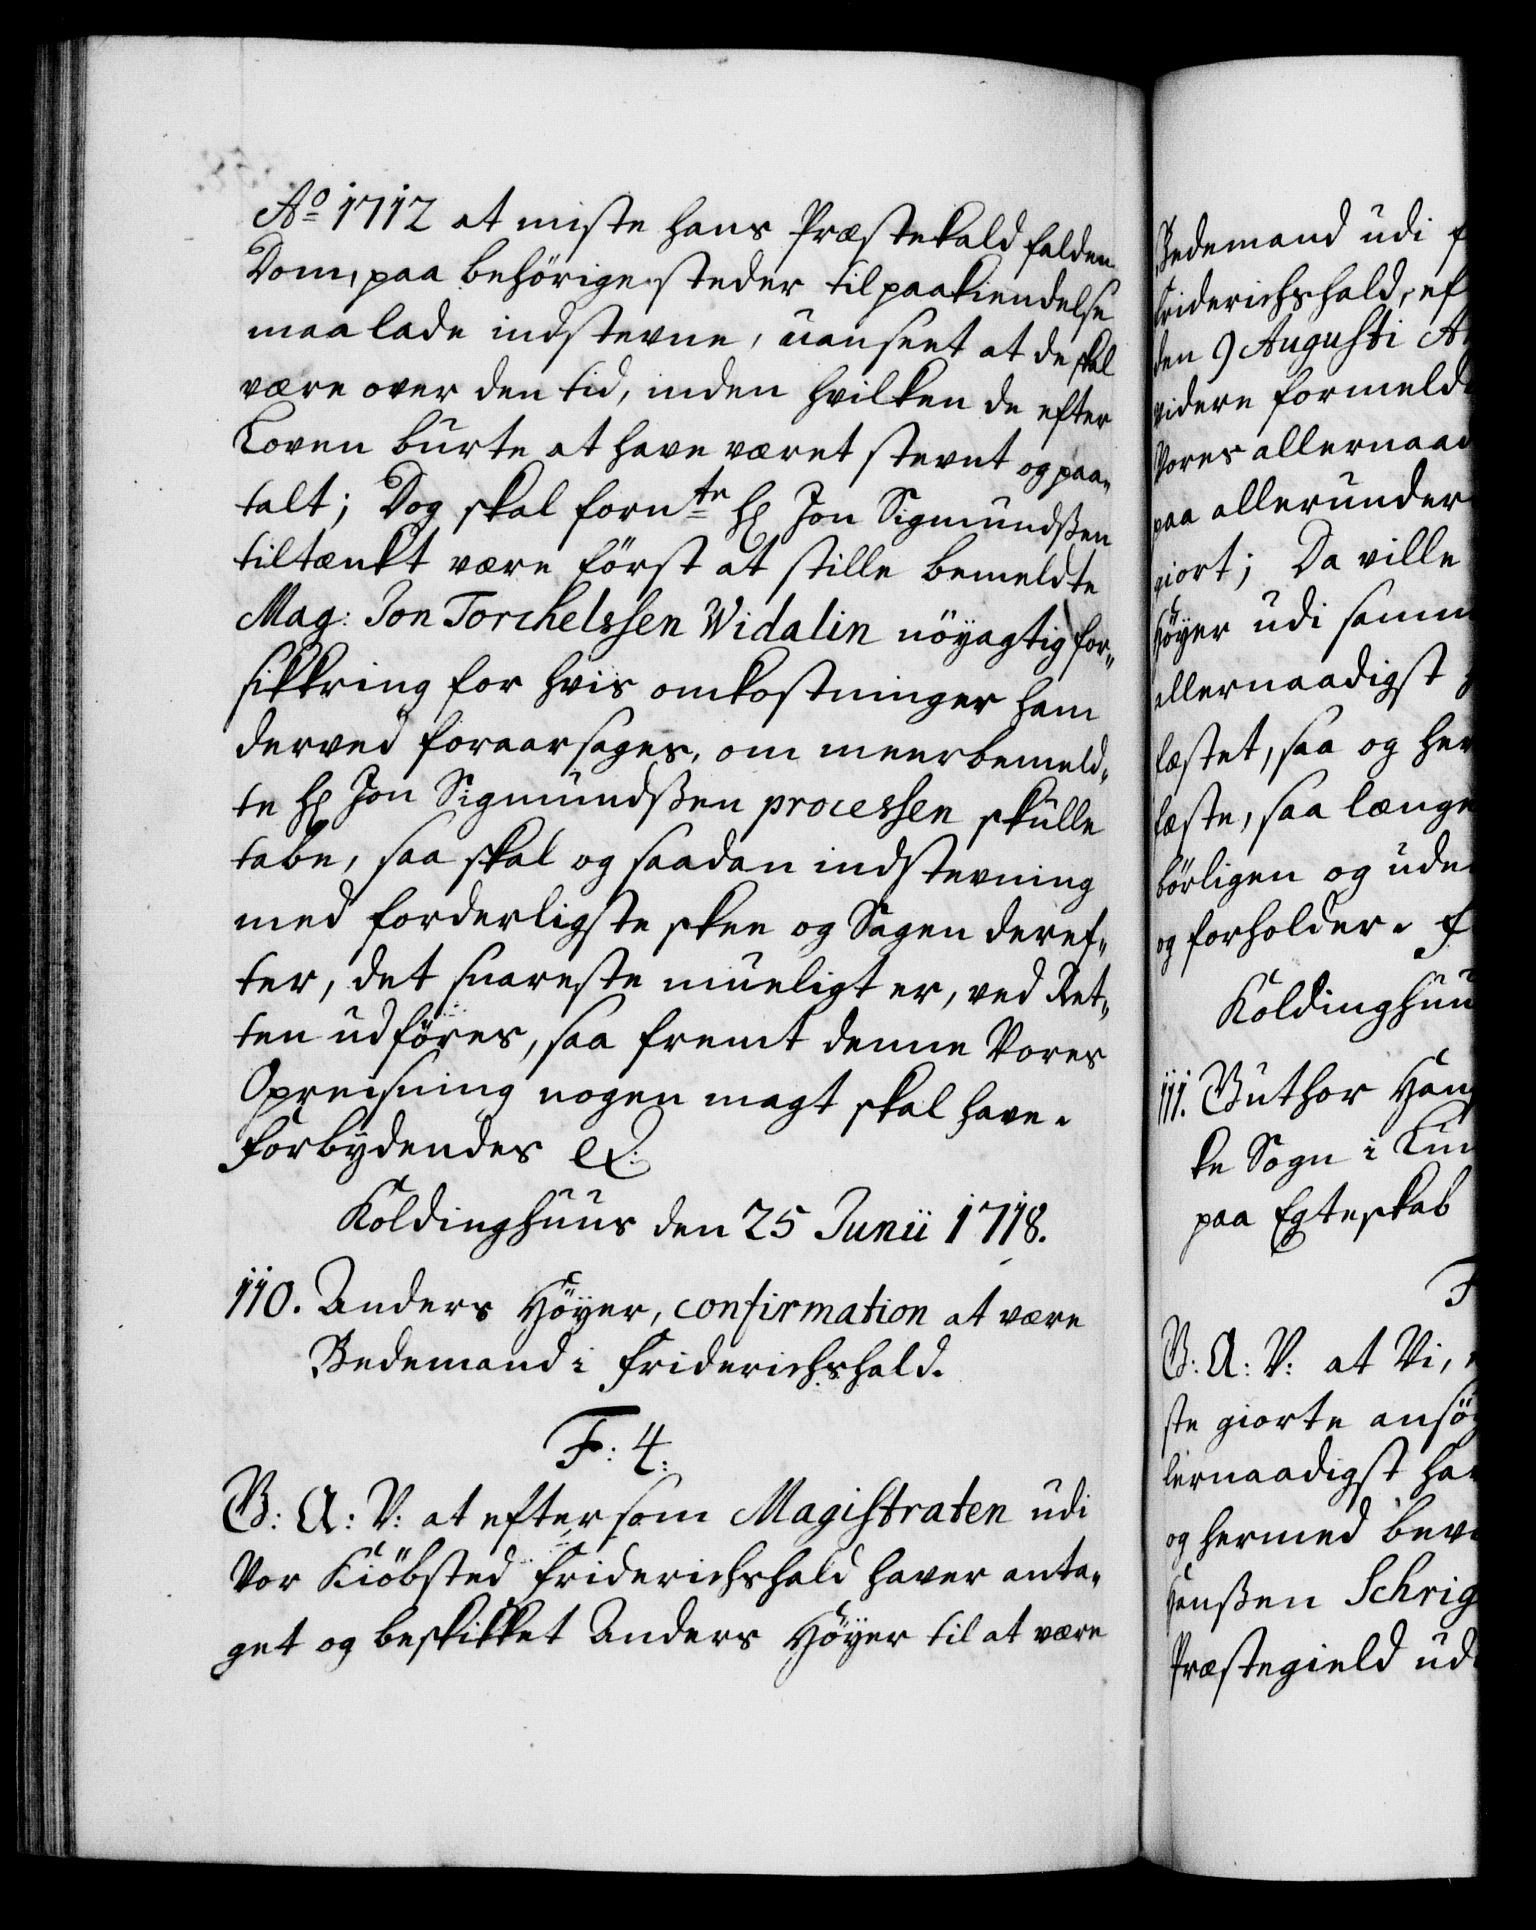 Ao 1712 at miste hans Præstekald falden
Dom, paa behörige steder til paakiendelse
maa lade indstevne, uanseet at de skal
være over den tid, inden hvilken de efter
Loven burte at have været stevnt og paa-
talt; Dog skal fornte Hr Jon Sigmundßen
tiltænkt være först at stille bemeldte
Mag: Jon Torchelssen Widalin nöyagtig for-
sikkring for hvis omkostninger ham
derved foraarsages, om meerbemeld-
te Hr Jon Sigmundßen processen skulle
tabe, saa skal og saadan indstevning
med forderligste skee og Sagen deref-
ter, det snareste mueligt er, ved Ret-
ten udföres, saa fremt denne Vores
Opreisning nogen magt skal have.
Forbydendes etc:
Koldinghuus den 25 Junii 1718.
110. Anders Höyer, confirmation at være
Bedemand i Friderichshald.
F: 4.
G: A: V: at eftersom Magistraten udi
Vor Kiöbsted Friderichshald haver anta-
get og beskikket Anders Höyer til at være
Bedemand udi
Friderichshald, ef
den 9 Augusti A
videre formeld
Vores allernaad
paa allerunder
giort; Da ville
Höyer udi samm
allernaadigst
fæstet, saa og her
fæste, saa længe
börligen og ude
og forholder. F
Koldinghuu
111. Guthor Han
ke Sogn i Lun
paa Egteskab
F
G: A: V: at Vi,
ste giorte ansög
lernaadigst ha
og hermed bev
Hanßen Schrig
Præstegield ud